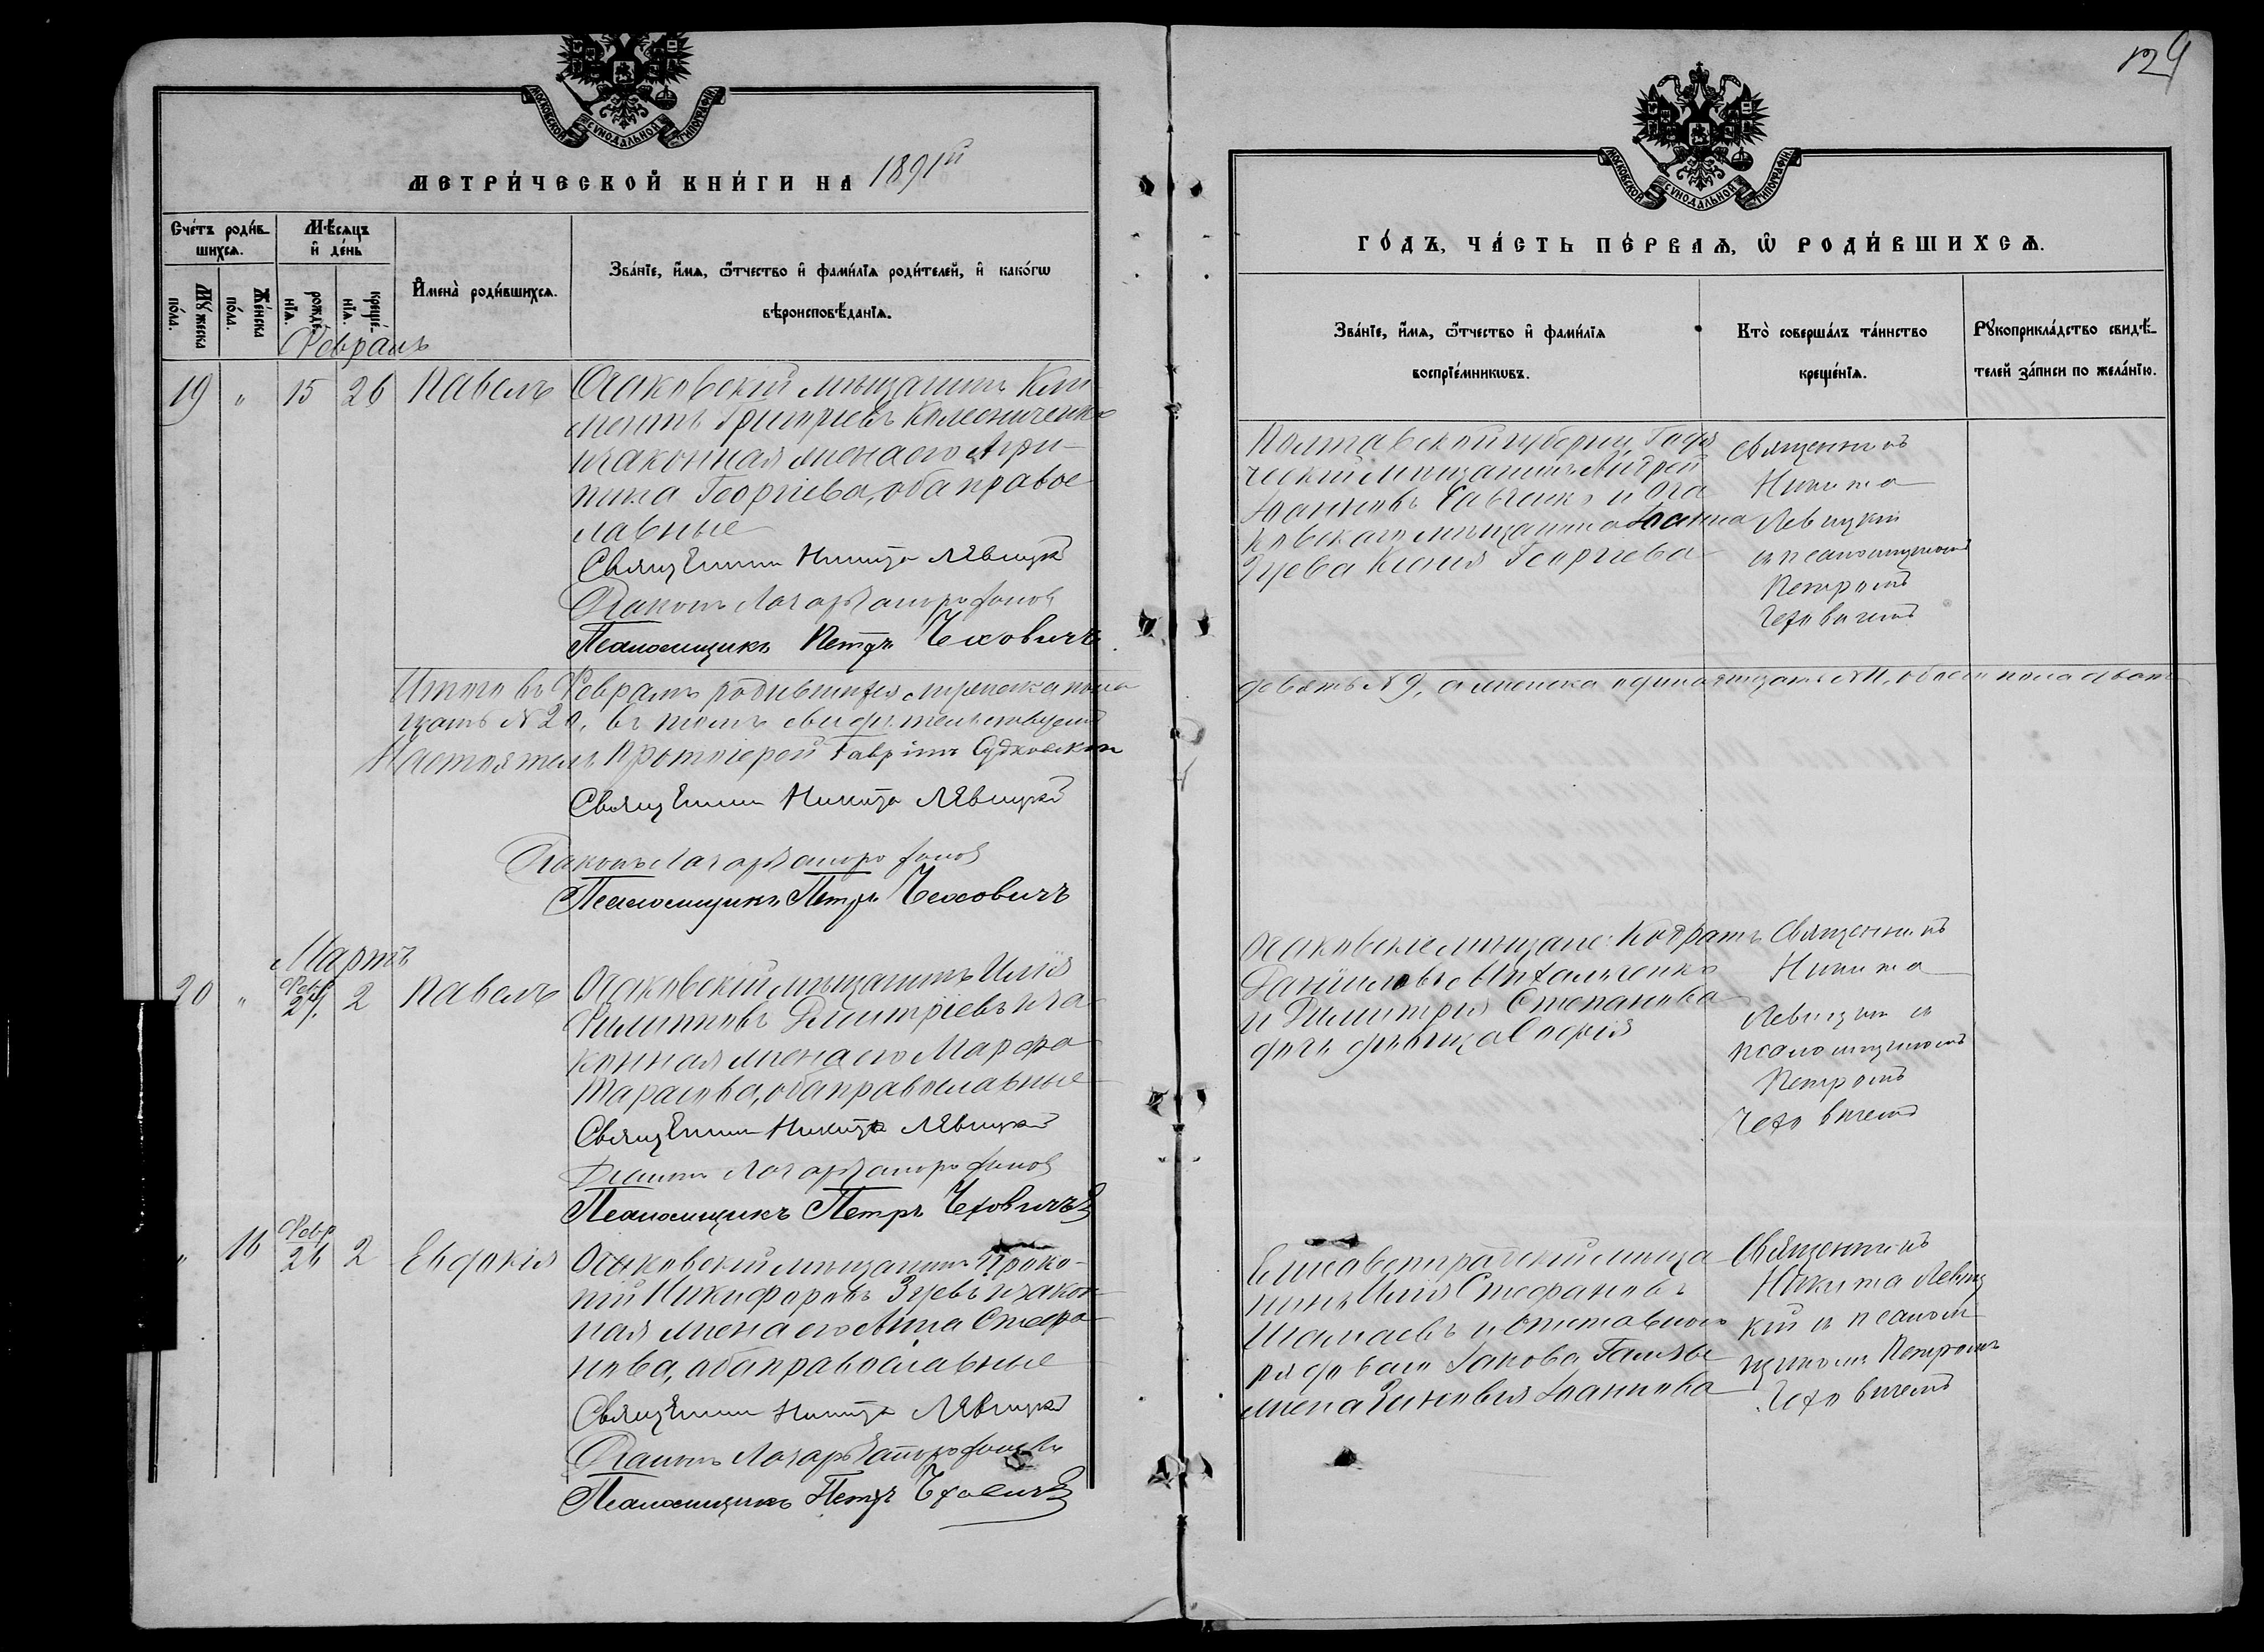 МОСКОВСКОЙ СУНОДАЛЬНОЙ ТИПОГРАФІИ
МЕТРИ́ЧЕСКОЙ КНИ́ГИ НА 1891й
Сче́тъ роди́в-
шихсѧ.
Мѣ́сѧцъ
и҆ де́нь
Мꙋ́жеска
по́ла.
Же́нска
по́ла.
рожде́-
нїѧ.
креще́-
нїѧ.
И҆мена̀ роди́вшихсѧ.
Зва́нїе, и҆́мѧ, ѻ҆́тчество и҆ фами́лїѧ роди́телей, и҆ како́гѡ
вѣроисповѣ́данїѧ.
Февраль
19 " 15 26 Павелъ Очаковскій мѣщанинъ Кли
ментъ Григоріевъ Колесниченко
и законная жена его Агри-
пина Георгіева, оба правос
лавные
Священникъ Никита Лѣвицкій
Діаконъ
Псаломщикъ Петръ Чеховичъ
Итого въ Февралѣ родившихся мужеска пола
цать №20, въ томъ свидѣтельствуемъ
Настоятель Протоіерей Гавріилъ Судковскій
Священникъ Никита Лѣвицкій
Діаконъ
Псаломщикъ Петръ Чеховичъ
Мартъ
20 " Февр 24. 2 Павелъ Очаковскій мѣщанинъ Илія
Филиповъ Дмитріевъ и за-
конная жена его Марфа
Тарасова, оба православные
Священникъ Никита Лѣвицкій
Діаконъ
Псаломщикъ Петръ Чеховичъ
" 16 Февр 26 2 Евдокія Очаковскій мѣщанинъ Проко-
пій Никифоровъ Зуевъ и закон
ная жена его Анна Стефа-
нова, оба православные
Священникъ Никита Лѣвицкій
Діаконъ
Псаломщикъ Петръ Чеховичъ
124
МОСКОВСКОЙ СУНОДАЛЬНОЙ ТИПОГРАФІИ
ГО́ДЪ, ЧА́СТЬ ПЕ́РВАѦ, Ѡ҆ РОДИ́ВШИХСѦ.
Зва́нїе, и҆́мѧ, ѻ҆́тчество и҆ фами́лїѧ
воспрїе́мникѡвъ.
Кто̀ соверша́лъ та́инство
креще́нїѧ.
Рꙋкоприкла́дство свидѣ́-
телей за́писи по жела́нїю.
Полтавской губерніи, Гадя
ческій мѣщанинъ Андрей
Іоанновъ Савченко и Оча
ковскаго мѣщанина Іоанна
Зуева Ксенія Георгіева
Священникъ
Никита
Левицкій
и псаломщикомъ
Петромъ
Чеховичемъ
девять №9, а женска одинадцать №11, обоего пола двад
Очаковскіе мѣщане: Кодратъ
Даніиловъ Михальченко
и Димитрія Степанова
дочь дѣвица Софія
Священникъ
Никита
Левицкій и
псаломщикомъ
Петромъ
Чеховичемъ
Елисаветградскій мѣща
нинъ Илія Стефановъ
и отставного
рядового Іакова
жена Зиновія Іоаннова
Священникъ
Никита Левиц
кій и псалом-
щикомъ Петромъ
Чеховичемъ